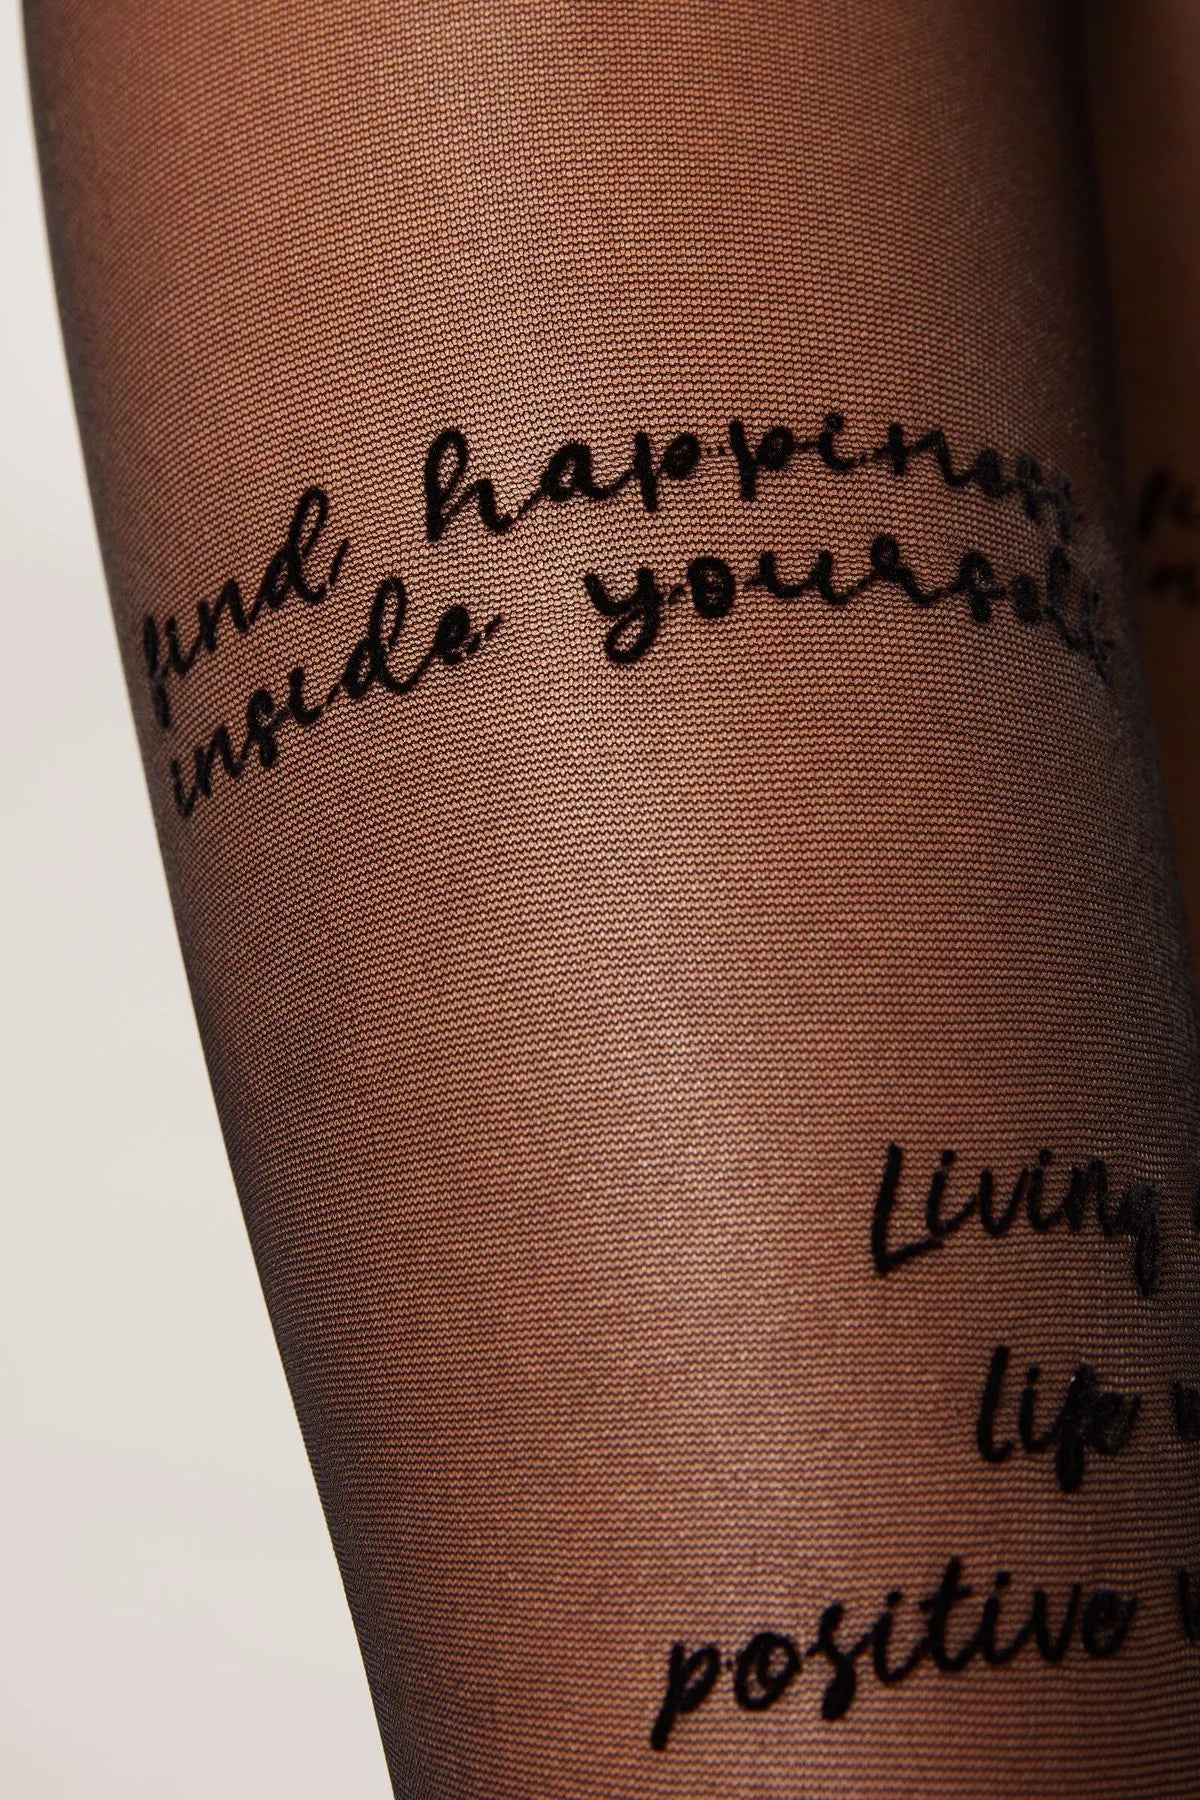 find happiness
inside yourself
Living
life
positive